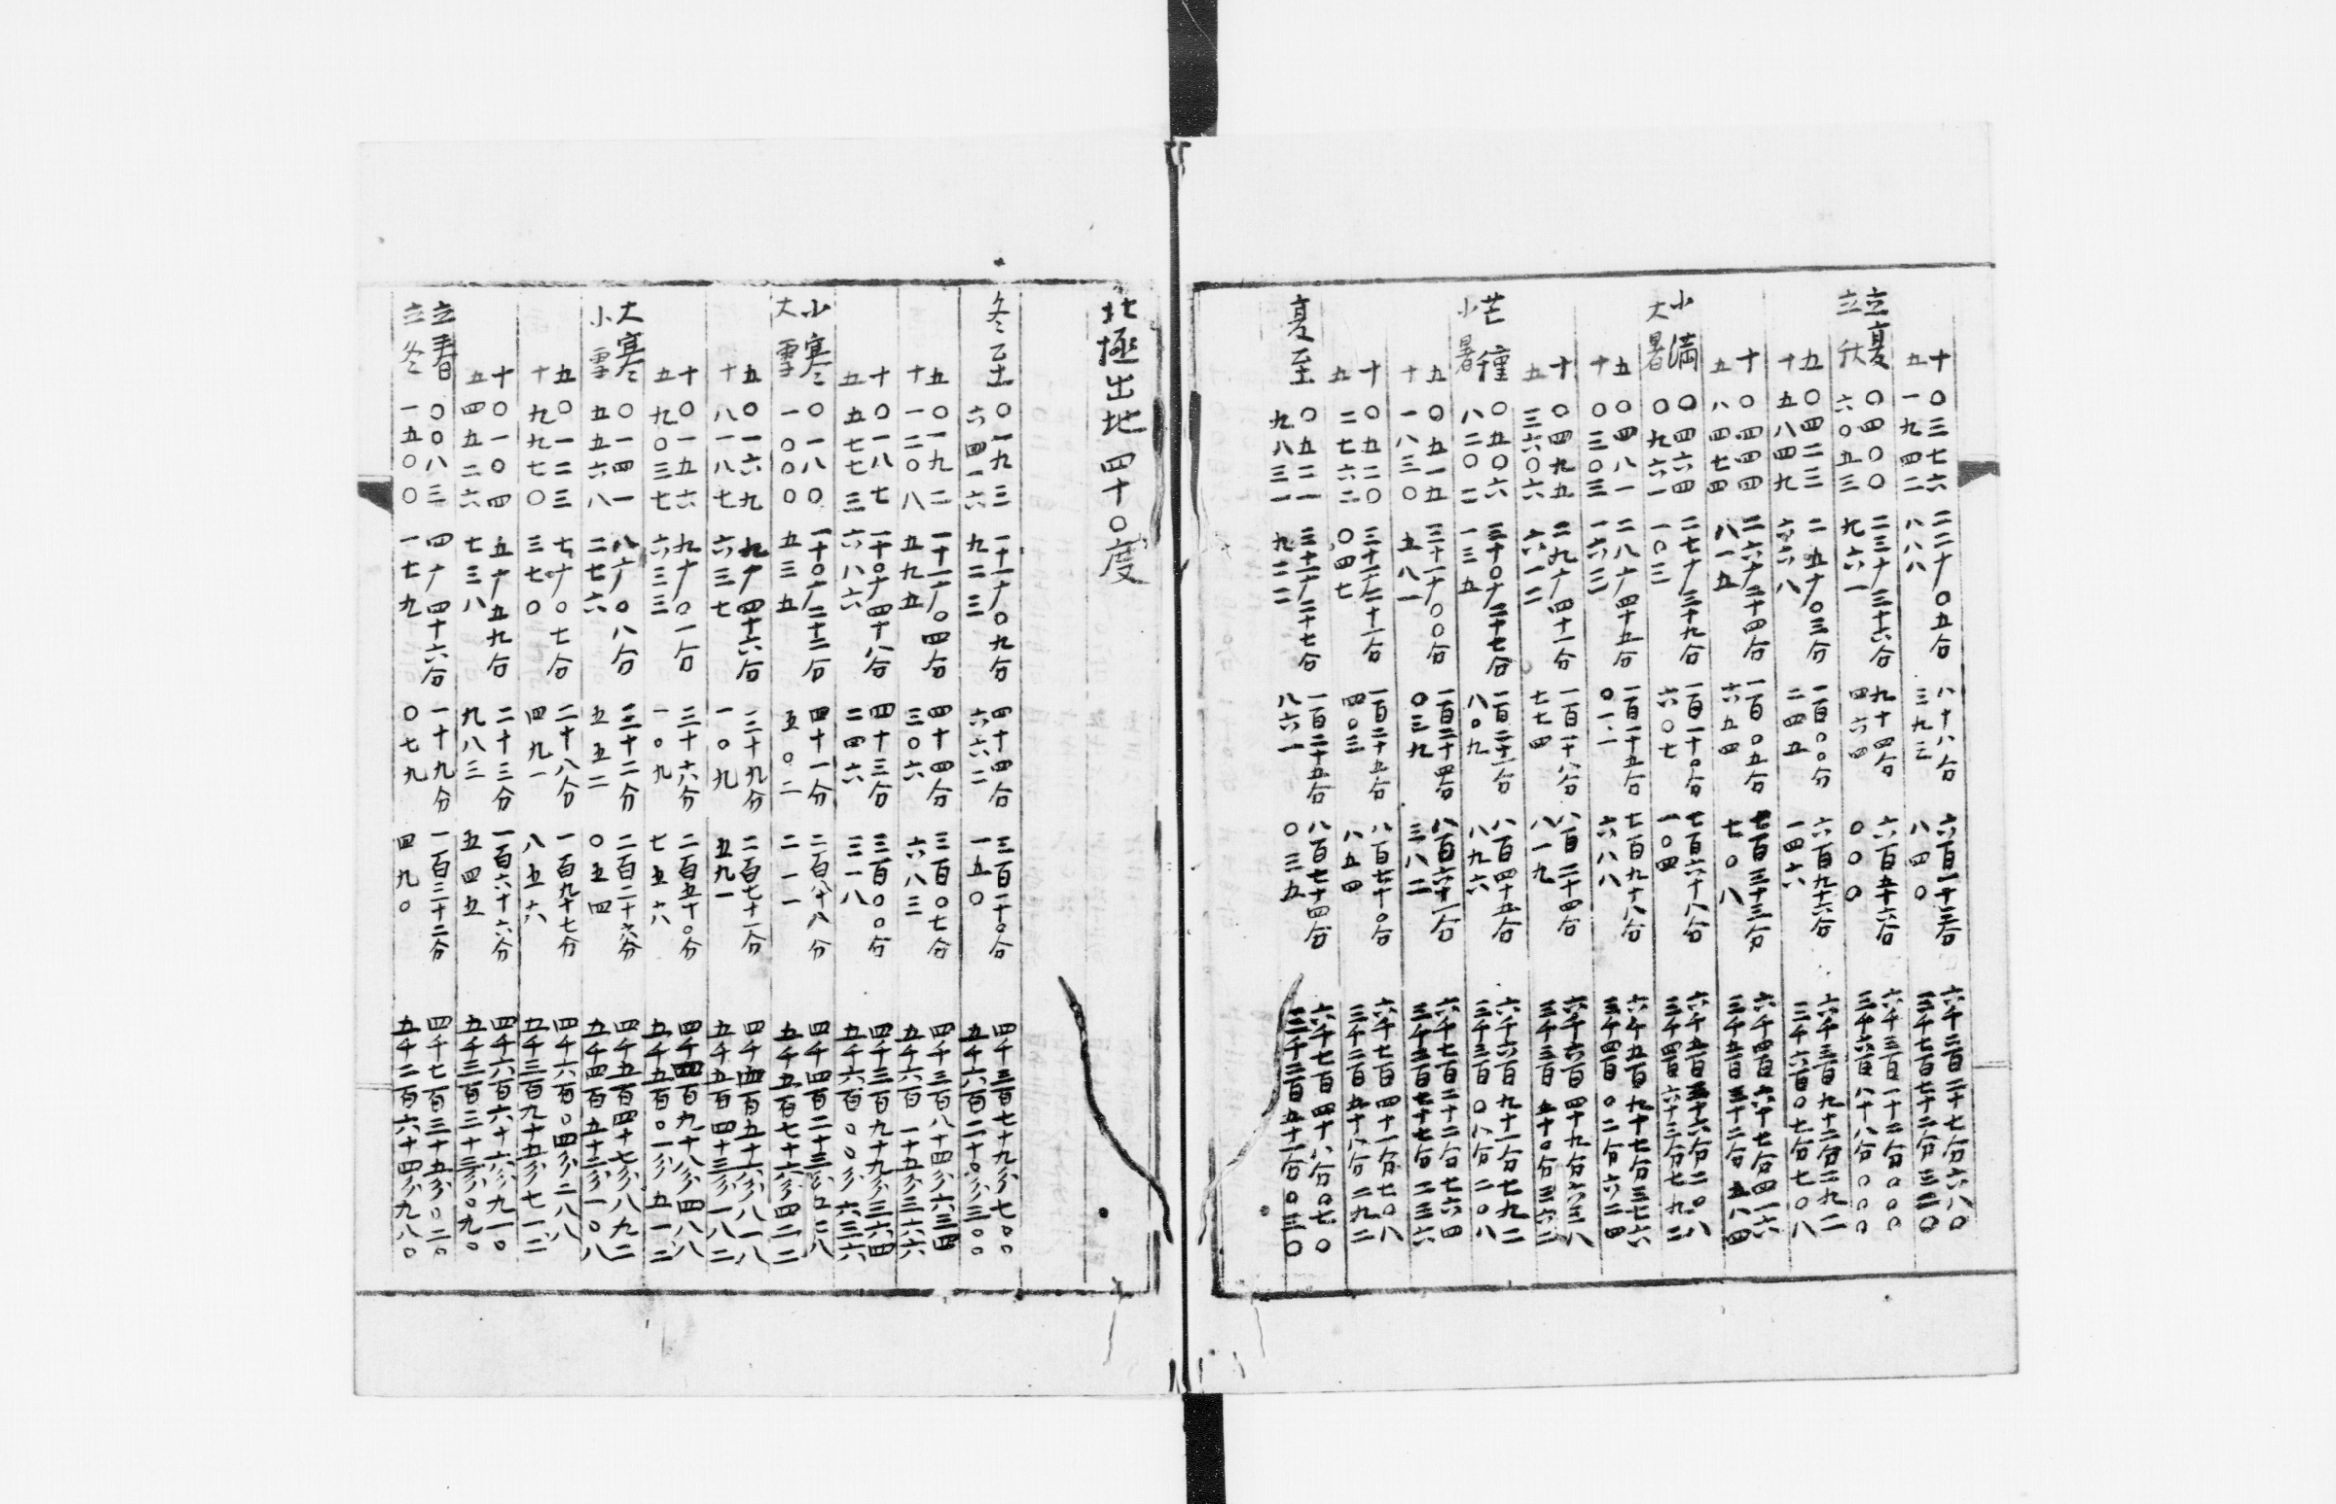 十 〇三七六 二二广〇五分 八十八分 六百一十三分 六千二百二十七分六八〇
五 一九四二 八八八 三九三 八四〇 三千七百七十二分三二〇
立夏 〇四〇〇 二三广三十六分 九十四分 六百五十六分 六千三百一十二分〇〇〇
立秋 六〇五三 九六一 四六四 〇〇〇 三千六百八十八分〇〇〇
五 〇四二三 二五广〇三分 一百〇〇分 六百九十六分 六千三百九十二分二九二
十 五八四九 六六八 二四五 一四六 三千六百〇七分七〇八
十 〇四四四 二六广三十四分 一百〇五分 七百三十三分 六千四百六十七分四一六
五 八四七四 八一五 六五四 七〇八 三千五百三十二分五八四
小満 〇四六四 二七广三十九分 一百一十〇分 七百六十八分 六千五百三十六分二〇八
大暑 〇九六一 一〇三 六〇七 一〇四 三千四百六十三分七九二
五 〇四八一 二八广四十五分 一百一十五分 七百九十八分 六千五百九十七分三七六
十 〇三〇三 一六三 〇一一 六八八 三千四百〇二分六二四
十 〇四九五 二九广四十一分 一百一十八分 八百二十四分 六千六百四十九分六三八
五 三六〇六 六一二 七七四 八一九 三千三百五十〇分三六二
芒種 〇五〇六 三十〇广三十七分 一百二十一分 八百四十五分 六千六百九十一分七九二
小暑 八二〇二 一三五 八〇九 八九六 三千三百〇八分二〇八
五 〇五一五 三十一广〇〇分 一百二十四分 八百六十一分 六千七百二十二分七六四
十 一八三〇 五八一 〇三九 三八二 三千二百七十七分二三六
十 〇五二〇 三十一广二十一分 一百二十五分 八百七十〇分 六千七百四十一分七〇八
五 二七六二 〇四七 四〇三 八五四 三千二百五十八分二九二
夏至 〇五二一 三十一广二十七分 一百二十五分 八百七十四分 六千七百四十八分〇七〇
九八三一 九二二 八六一 〇三五 三千二百五十一分〇三〇
北極出地四十〇度
冬至 〇一九三 一十一广〇九分 四十四分 三百一十〇分 四千三百七十九分七〇〇
六四一六 九二三 六六二 一五〇 五千六百二十〇分三〇〇
五 〇一九二 一十一广〇四分 四十四分 三百〇七分 四千三百八十四分六三四
十 一二〇八 五九五 三〇六 六八三 五千六百一十五分三六六
十 〇一八七 一十〇广四十八分 四十三分 三百〇〇分 四千三百九十九分三六四
五 五七七三 六八六 二四六 三一八 五千六百〇〇分六三六
小寒 〇一八〇 一十〇广二十二分 四十一分 二百八十八分 四千四百二十三分五七八
大雪 一〇〇〇 五三五 五〇二 二一一 五千五百七十六分四二二
五 〇一六九 九广四十六分 三十九分 二百七十一分 四千四百五十六分八一八
十 八一八七 六三七 一〇九 五九一 五千五百四十三分一八二
十 〇一五六 九广〇一分 三十六分 二百五十〇分 四千四百九十八分四八八
五 九〇三七 六三三 一〇九 七五六 五千五百〇一分五一二
大寒 〇一四一 八广〇八分 三十二分 二百二十六分 四千五百四十七分八九二
小雪 五五六八 二七六 五五二 〇五四 五千四百五十二分一〇八
五 〇一二三 七广〇七分 二十八分 一百九十七分 四千六百〇四分二八八
十 九九七〇 三七〇 四九一 八五六 五千三百九十五分七一二
十 〇一〇四 五广五九分 二十三分 一百六十六分 四千六百六十六分九一〇
五 四五二六 七三八 九八三 五四五 五千三百三十三分〇九〇
立春 〇〇八三 四广四十六分 一十九分 一百三十二分 四千七百三十五分〇二〇
立冬 一五〇〇 一七九 〇七九 四九〇 五千二百六十四分九八〇